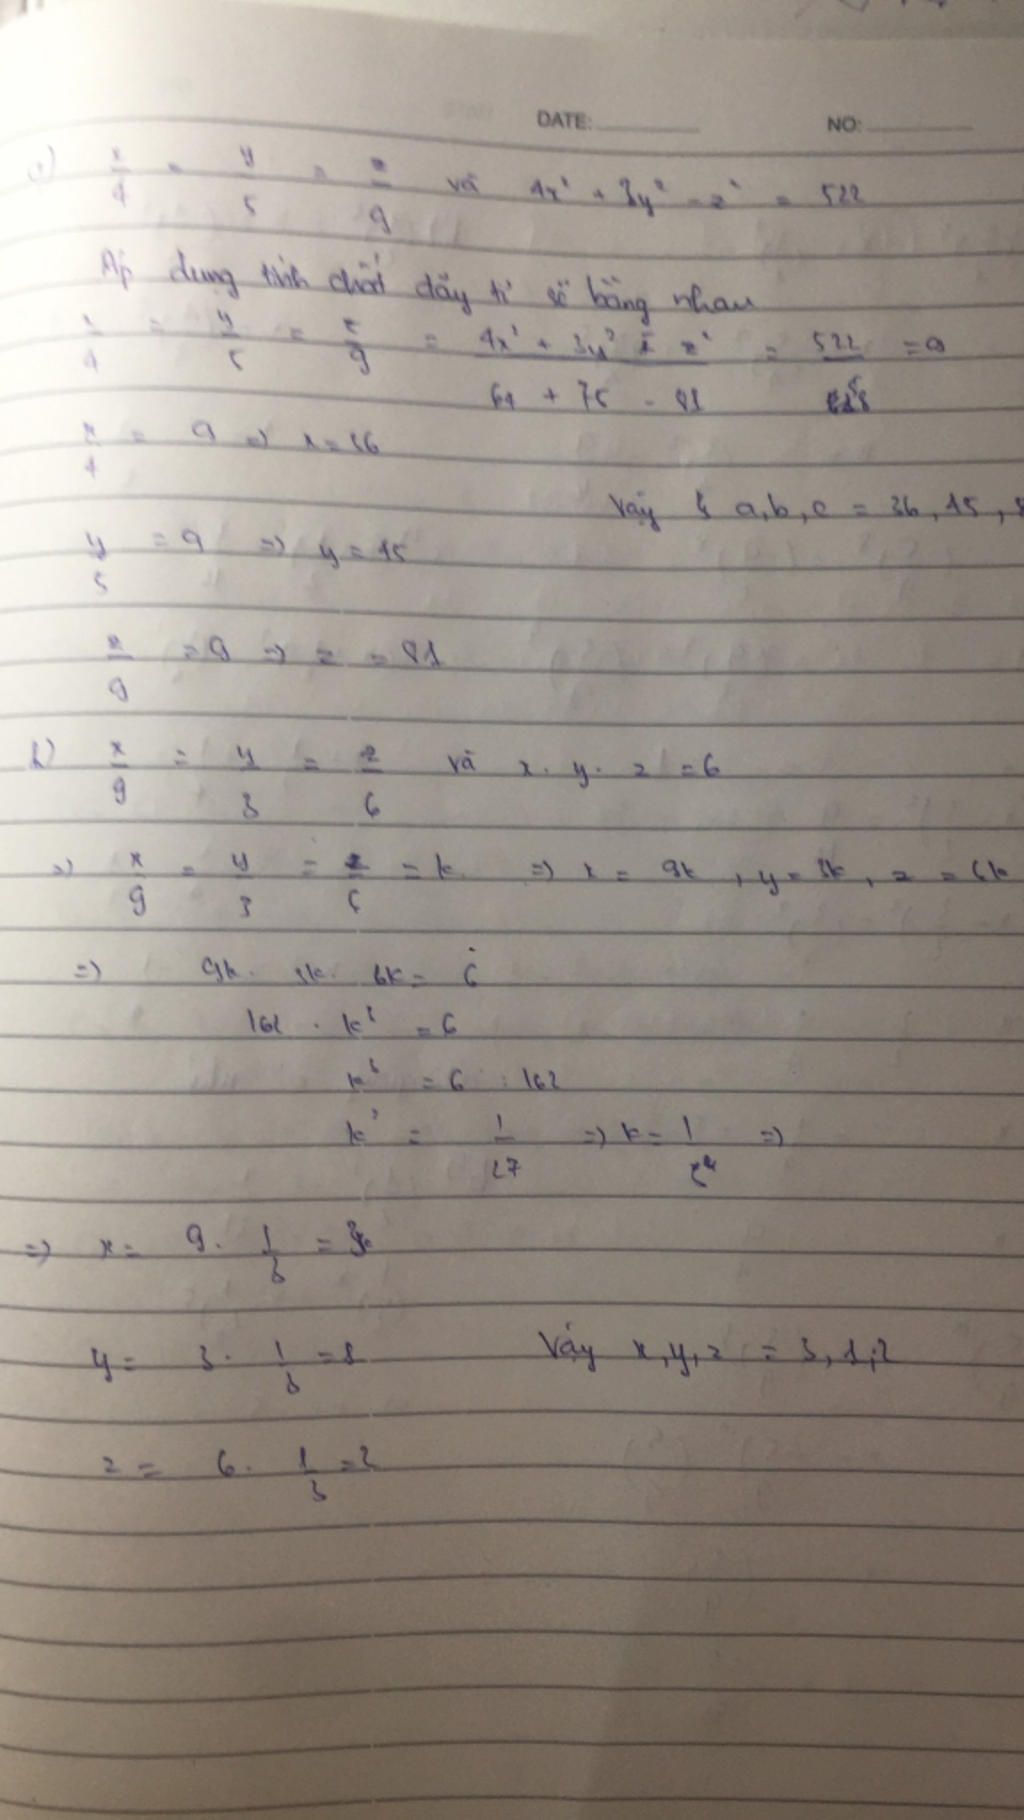 DATE: NO:
a) x/4 = y/5 = z/9 và 4x² + 3y² - z² = 522
Áp dụng tính chất dãy tỉ số bằng nhau
x/4 = y/5 = z/9 = 4x² + 3y² - z² / 64 + 75 - 81 = 522/58 = 9
x/4 = 9 => x = 36
Vậy a, b, c = 36, 45,
y/5 = 9 => y = 45
z/9 = 9 => z = 81
b) x/9 = y/3 = z/6 và x . y . z = 6
=> x/9 = y/3 = z/6 = k => x = 9k, y = 3k, z = 6k
=> 9k . 3k . 6k = 6
162 . k³ = 6
k³ = 6 : 162
k³ = 1/27 => k = 1/3 =>
=> x = 9 . 1/3 = 3
y = 3 . 1/3 = 1 Vậy x, y, z = 3, 1, 2
z = 6 . 1/3 = 2